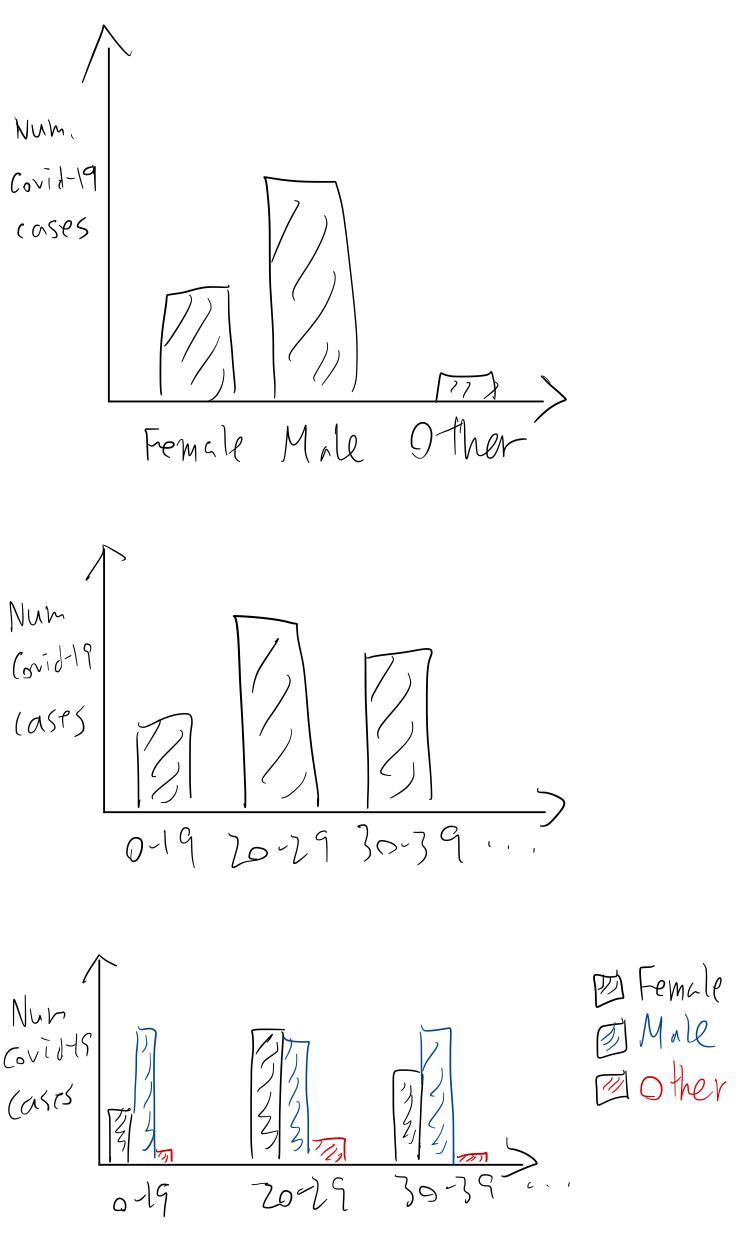 Num.
Covid-19
cases
Female Male Other
Num
Covid-19
cases
0-19 20-29 30-39 ...
Num
Covid-19
cases
0-19 20-29 30-39 ...
Female
Male
Other